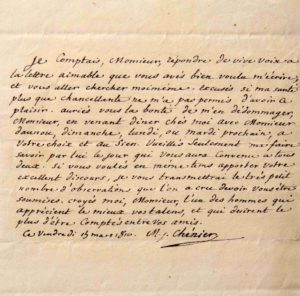 Je Comptais, Monsieur, répondre de vive voix à
la lettre aimable que vous avés bien voulu m'écrire,
et vous aller chercher moimême. excusés si ma santé
plus que chancellante ne m'a pas permis d'avoir ce
plaisir. auriés vous la bonté de m'en dédomager,
Monsieur, en venant diner chés moi avec Monsieur
daunou, dimanche, lundi, ou mardi prochain, à
votre choix et au sien. Veuillés seulement me faire
savoir par lui le jour que vous aurés Convenu entre
deux. si vous voulés en même tems apporter votre
excellent discours, je vous transmettrai le très petit
nombre d'observations que l'on a cru devoir vous être
soumises. croyés moi, Monsieur, l'un des hommes qui
apprécient le mieux vos talens, et qui désirent le
plus d'être Comptés entre vos amis.
Ce Vendredi mars 1810. M. j. Chénier